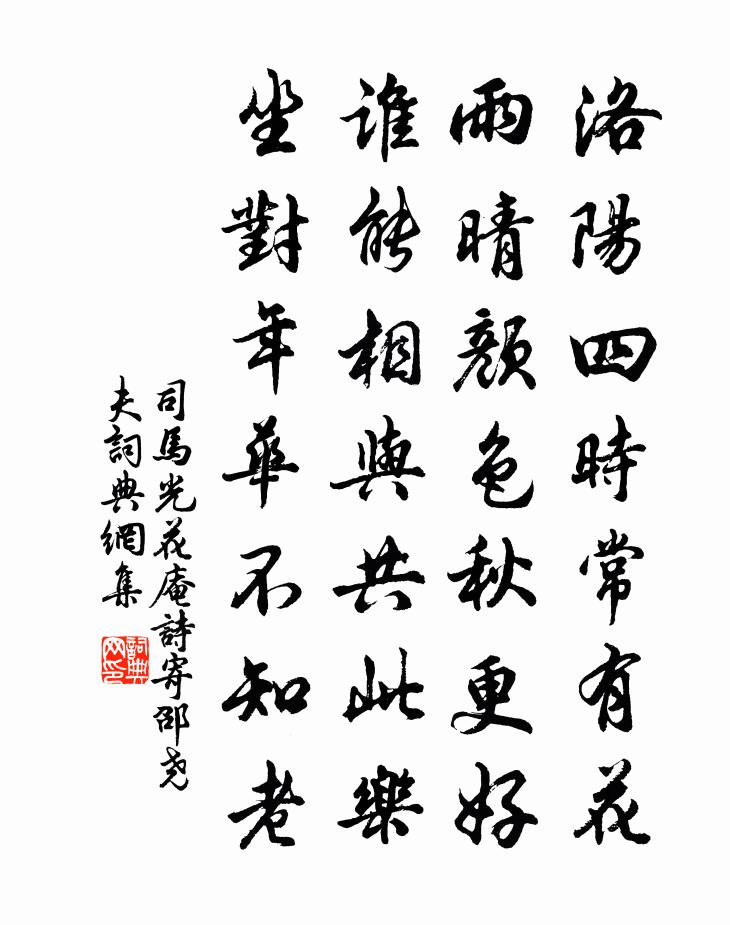 洛陽四時常有花
雨晴顏色秋更好
誰能相與共此樂
坐對年華不知老
司馬光花庵詩寄邵堯
夫詞典網集
詞典网印